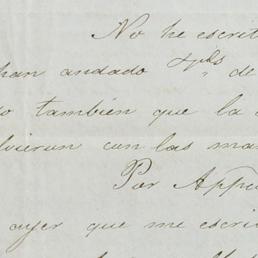 No he escrit
han andado de
o tambien que la
lvierun con las ma
Por Appe
ayer que me escri